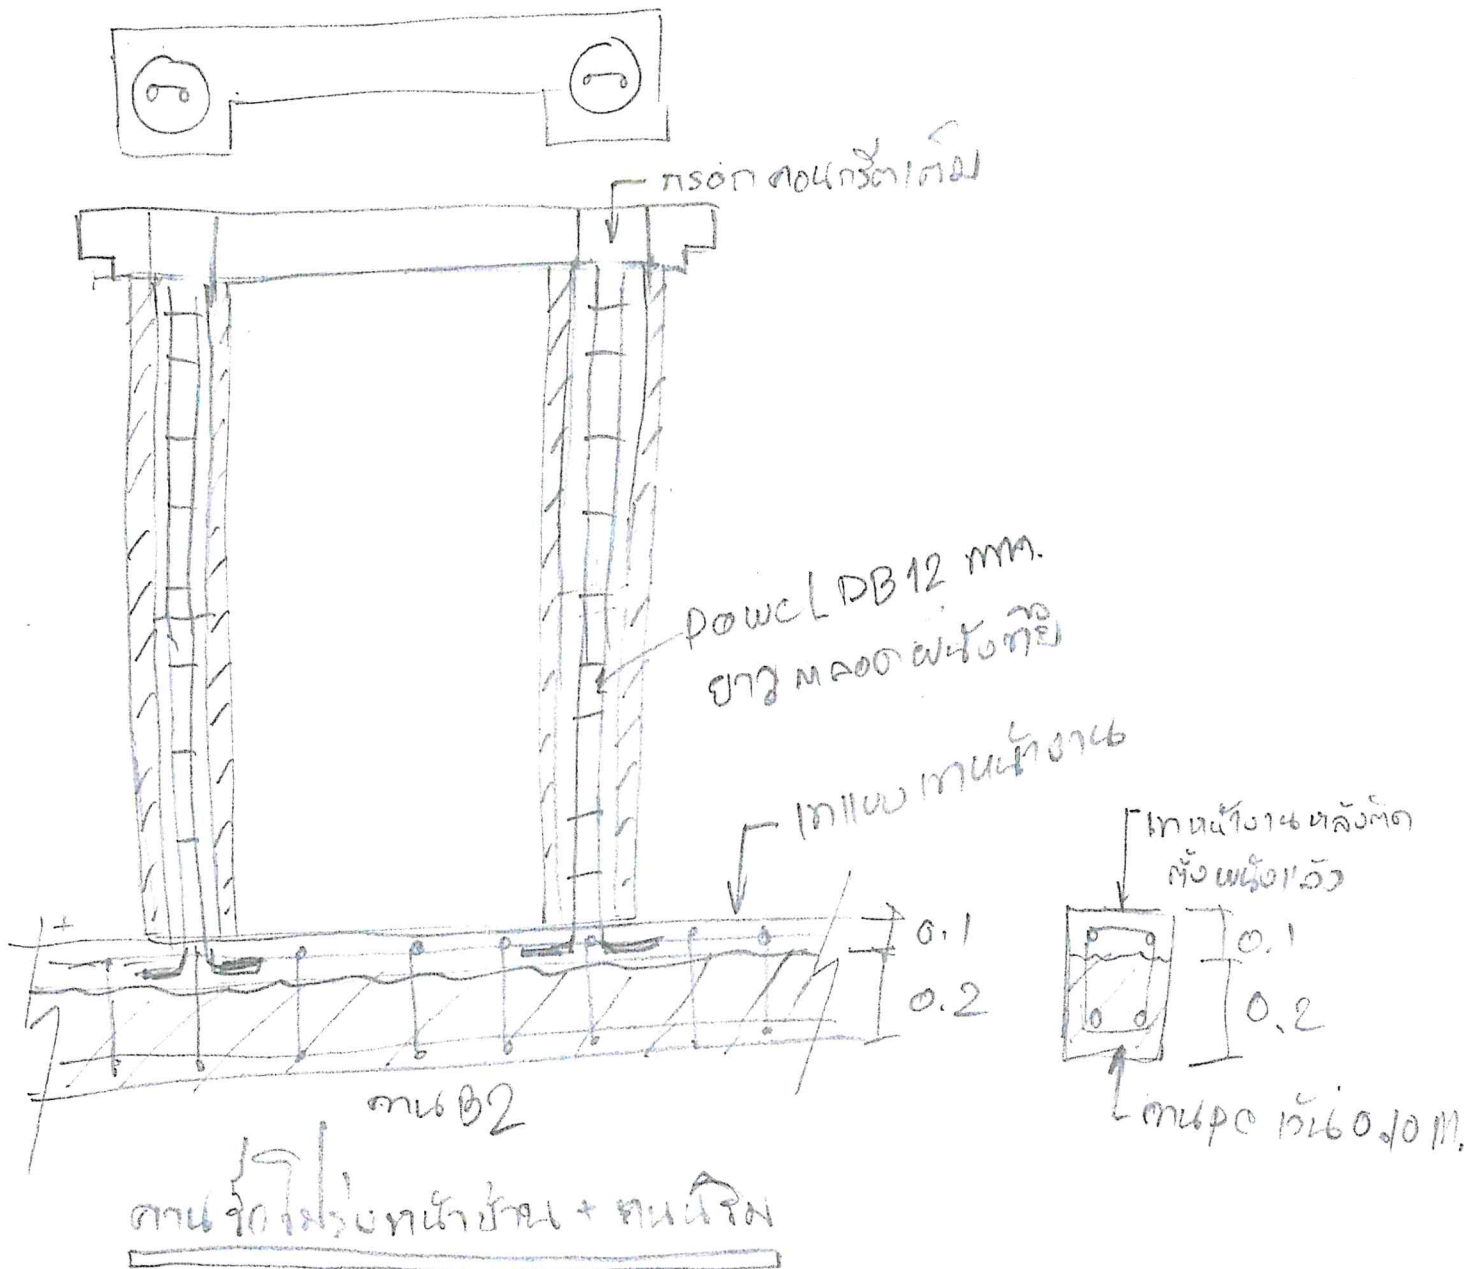 กรอกคอนกรีตเต็ม
Dowel DB12 mm.
ยาวตลอดผนัง
เทแบบ เทหน้างาน
0.1
0.2
เทหน้างานหลังติด
ตั้งผนังแล้ว
0.1
0.2
คาน PC เว้น 0.10 m.
คาน B2
คานรั้วโปร่งหน้าบ้าน +